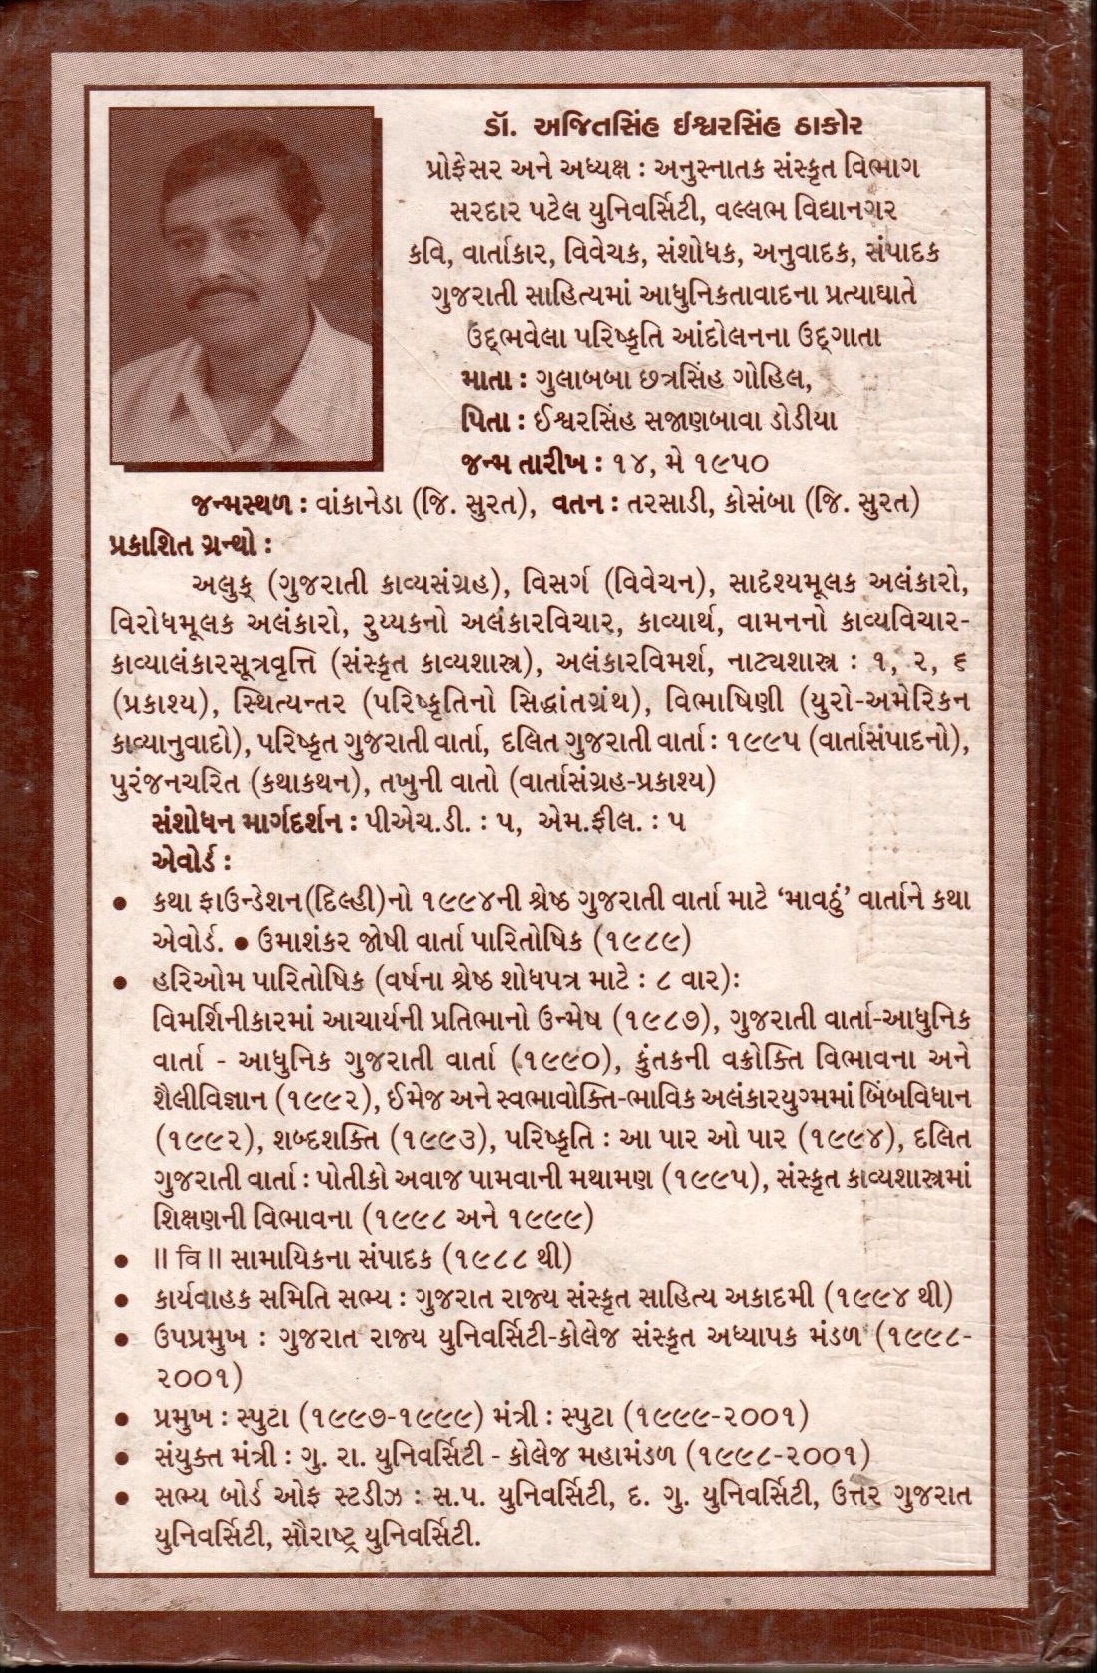 ડૉ. અજિતસિંહ ઈશ્વરસિંહ ઠાકોર
પ્રોફેસર અને અધ્યક્ષ : અનુસ્નાતક સંસ્કૃત વિભાગ
સરદાર પટેલ યુનિવર્સિટી, વલ્લભ વિદ્યાનગર
કવિ, વાર્તાકાર, વિવેચક, સંશોધક, અનુવાદક, સંપાદક
ગુજરાતી સાહિત્યમાં આધુનિકતાવાદના પ્રત્યાઘાતે
ઉદ્ભવેલા પરિષ્કૃતિ આંદોલનના ઉદ્ગાતા
માતા : ગુલાબબા છત્રસિંહ ગોહિલ,
પિતા : ઈશ્વરસિંહ સજાણબાવા ડોડીયા
જન્મ તારીખ : ૧૪, મે ૧૯૫૦
જન્મસ્થળ : વાંકાનેડા (જિ. સુરત), વતન : તરસાડી, કોસંબા (જિ. સુરત)
પ્રકાશિત ગ્રન્થો :
અલુક્ (ગુજરાતી કાવ્યસંગ્રહ), વિસર્ગ (વિવેચન), સાદૃશ્યમૂલક અલંકારો,
વિરોધમૂલક અલંકારો, રુય્યકનો અલંકારવિચાર, કાવ્યાર્થ, વામનનો કાવ્યવિચાર-
કાવ્યાલંકારસૂત્રવૃત્તિ (સંસ્કૃત કાવ્યશાસ્ત્ર), અલંકારવિમર્શ, નાટ્યશાસ્ત્ર : ૧, ૨, ૬
(પ્રકાશ્ય), સ્થિત્યન્તર (પરિષ્કૃતિનો સિદ્ધાંતગ્રંથ), વિભાષિણી (યુરો-અમેરિકન
કાવ્યાનુવાદો), પરિષ્કૃત ગુજરાતી વાર્તા, દલિત ગુજરાતી વાર્તા : ૧૯૯૫ (વાર્તાસંપાદનો),
પુરંજનચરિત (કથાકથન), તખુની વાતો (વાર્તાસંગ્રહ-પ્રકાશ્ય)
સંશોધન માર્ગદર્શન : પીએચ.ડી. : ૫, એમ.ફીલ. : ૫
એવોર્ડ :
• કથા ફાઉન્ડેશન(દિલ્હી)નો ૧૯૯૪ની શ્રેષ્ઠ ગુજરાતી વાર્તા માટે ‘માવઠું’ વાર્તાને કથા
એવોર્ડ. • ઉમાશંકર જોષી વાર્તા પારિતોષિક (૧૯૮૯)
• હરિઓમ પારિતોષિક (વર્ષના શ્રેષ્ઠ શોધપત્ર માટે : ૮ વાર):
વિમર્શિનીકારમાં આચાર્યની પ્રતિભાનો ઉન્મેષ (૧૯૮૭), ગુજરાતી વાર્તા-આધુનિક
વાર્તા - આધુનિક ગુજરાતી વાર્તા (૧૯૯૦), કુંતકની વક્રોક્તિ વિભાવના અને
શૈલીવિજ્ઞાન (૧૯૯૨), ઈમેજ અને સ્વભાવોક્તિ-ભાવિક અલંકારયુગ્મમાં બિંબવિધાન
(૧૯૯૨), શબ્દશક્તિ (૧૯૯૩), પરિષ્કૃતિ : આ પાર ઓ પાર (૧૯૯૪), દલિત
ગુજરાતી વાર્તા : પોતીકો અવાજ પામવાની મથામણ (૧૯૯૫), સંસ્કૃત કાવ્યશાસ્ત્રમાં
શિક્ષણની વિભાવના (૧૯૯૮ અને ૧૯૯૯)
• ॥ वि ॥ સામાયિકના સંપાદક (૧૯૮૮ થી)
• કાર્યવાહક સમિતિ સભ્ય : ગુજરાત રાજ્ય સંસ્કૃત સાહિત્ય અકાદમી (૧૯૯૪ થી)
• ઉપપ્રમુખ : ગુજરાત રાજ્ય યુનિવર્સિટી-કોલેજ સંસ્કૃત અધ્યાપક મંડળ (૧૯૯૮-
૨૦૦૧)
• પ્રમુખ : સ્પુટા (૧૯૯૭-૧૯૯૯) મંત્રી : સ્પુટા (૧૯૯૯-૨૦૦૧)
• સંયુક્ત મંત્રી : ગુ. રા. યુનિવર્સિટી - કોલેજ મહામંડળ (૧૯૯૮-૨૦૦૧)
• સભ્ય બોર્ડ ઓફ સ્ટડીઝ : સ.પ. યુનિવર્સિટી, દ. ગુ. યુનિવર્સિટી, ઉત્તર ગુજરાત
યુનિવર્સિટી, સૌરાષ્ટ્ર યુનિવર્સિટી.